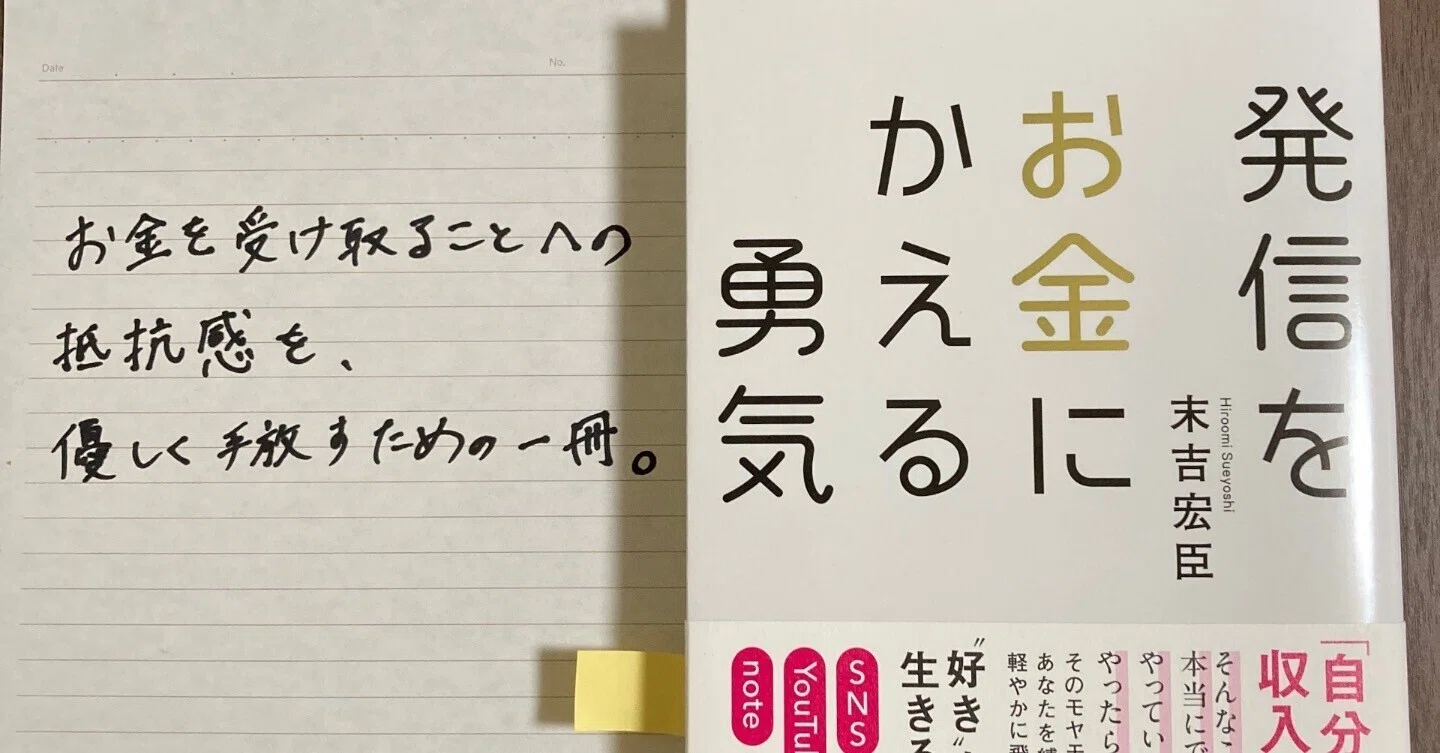 Date
No.
お金を受け取ることへの
抵抗感を、
優しく手放すための一冊。
発信を
お金に
かえる
勇気
Hiroomi Sueyoshi
末吉宏臣
「自分
収入
そんなこ
本当にで
やってい
やったら
そのモヤモ
あなたを縛
軽やかに飛
"好き"
生きる
SNS
YouTu
note